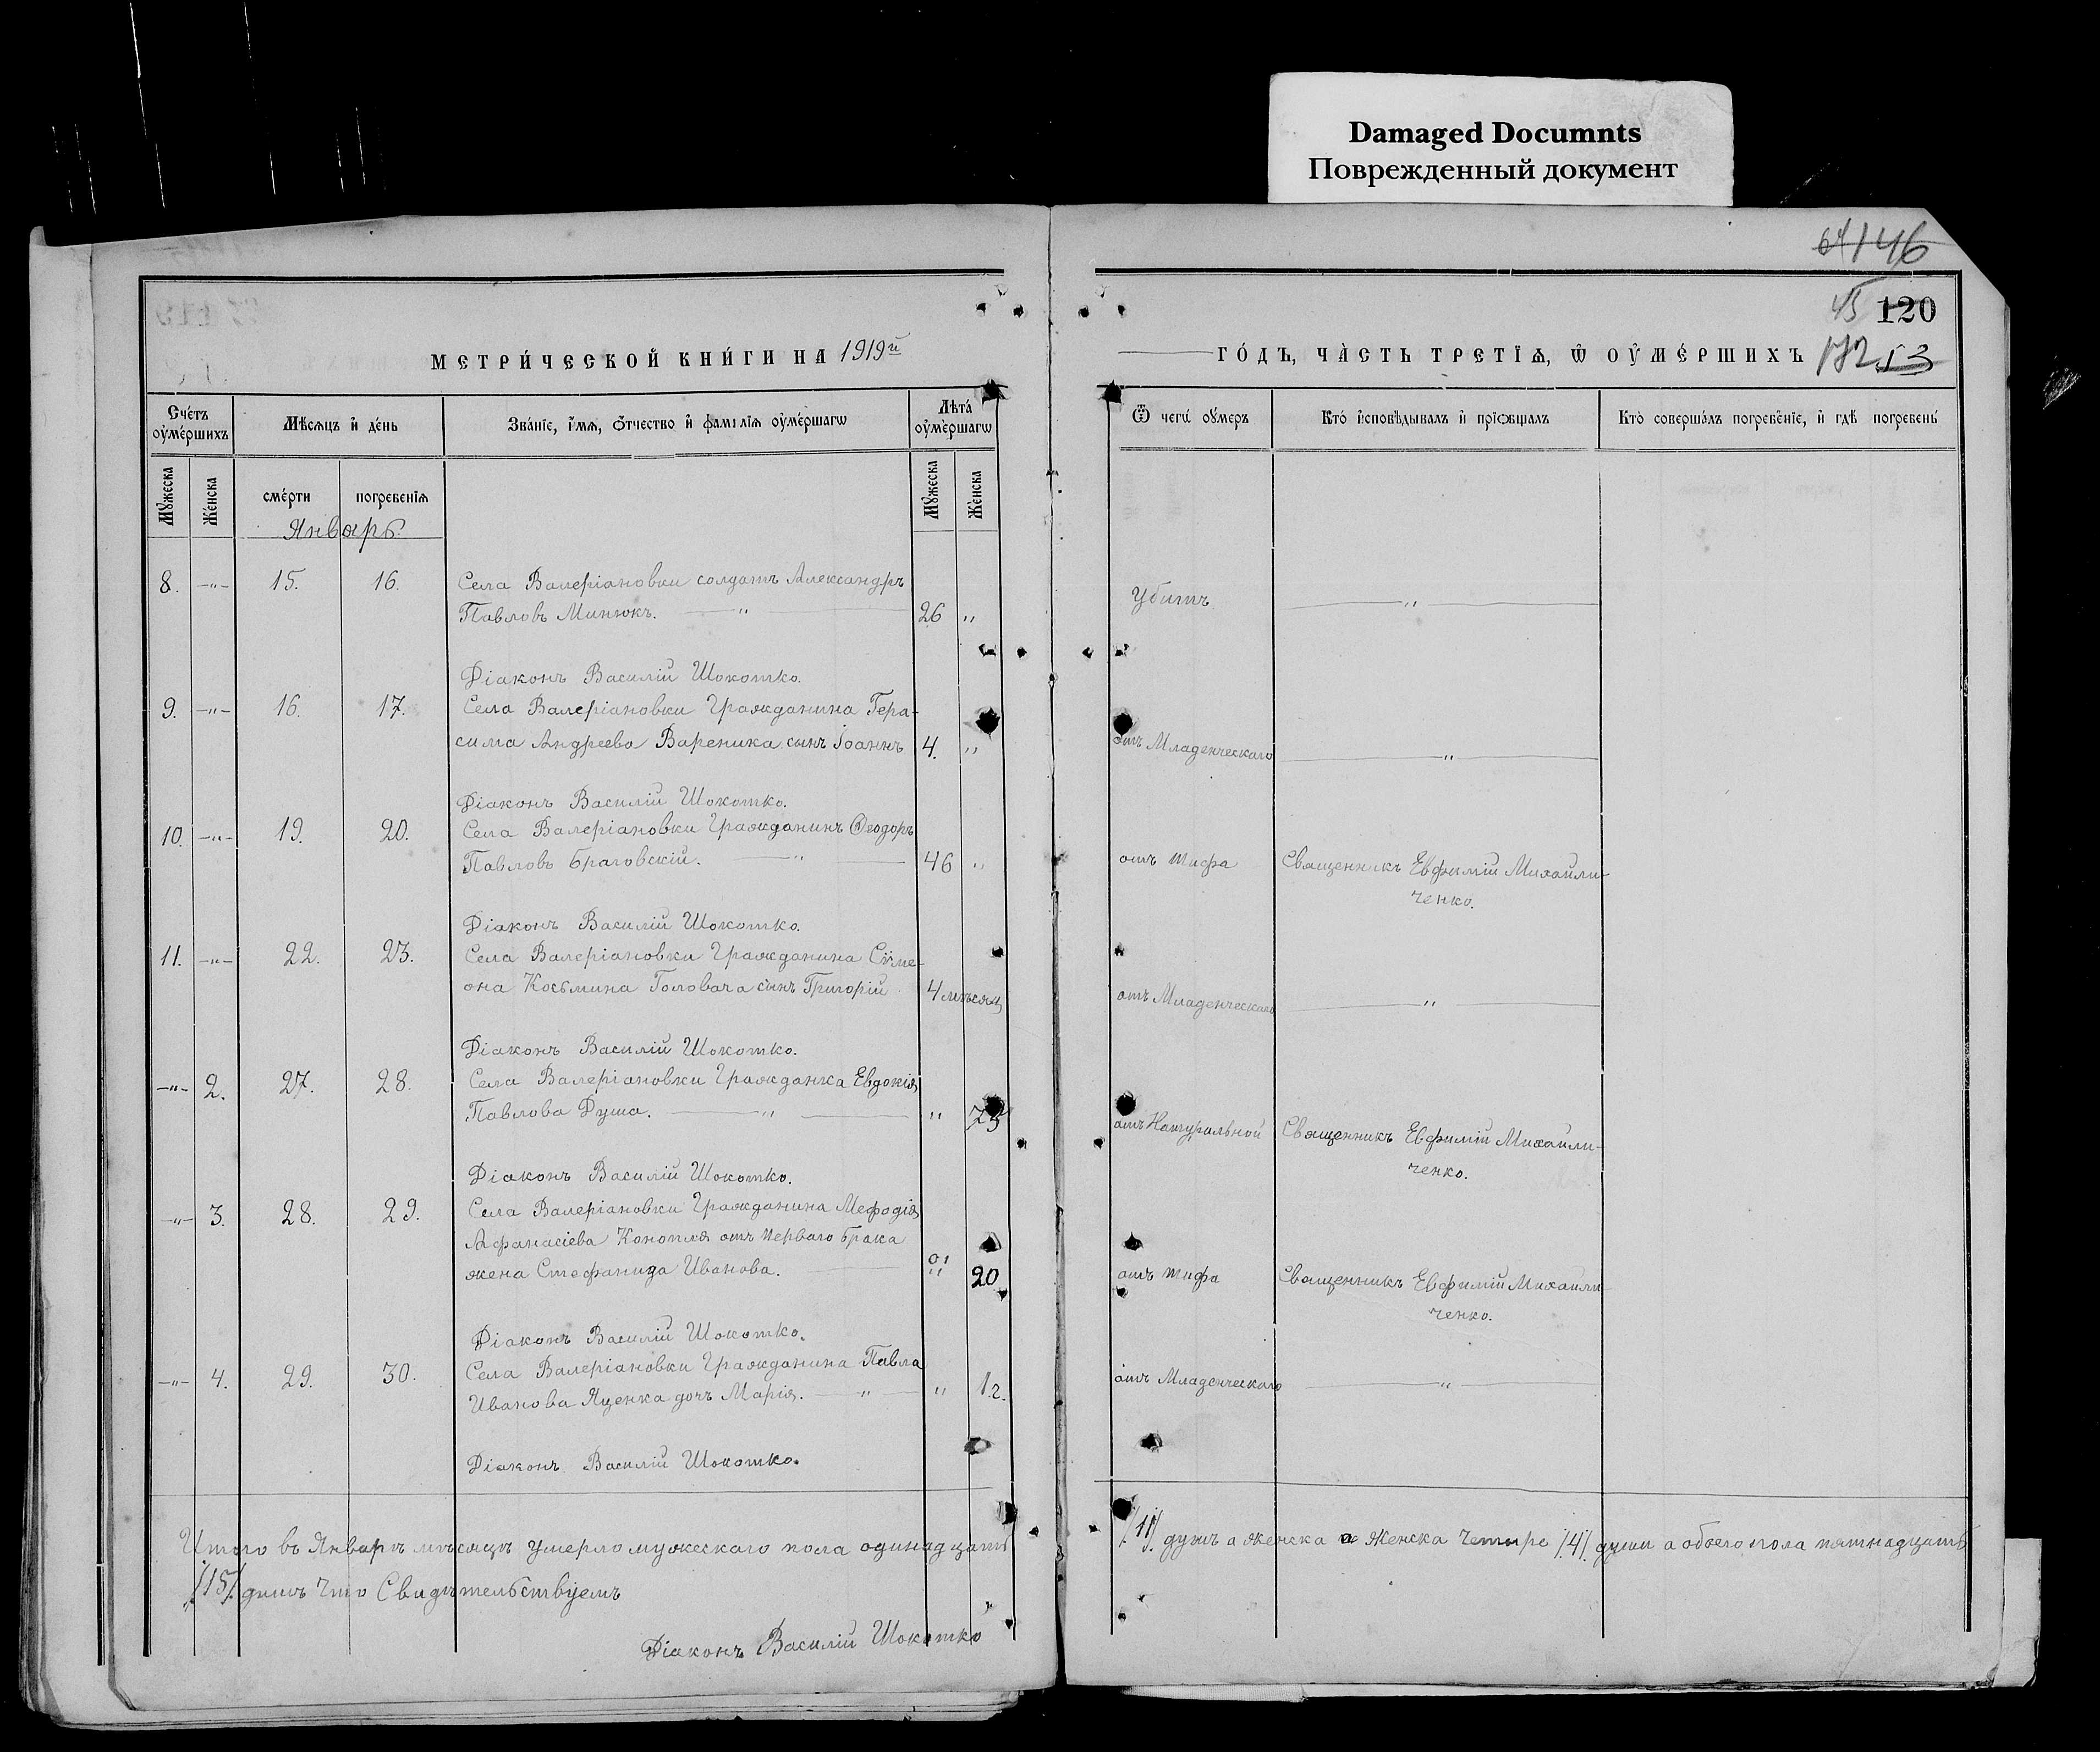 Damaged Documnts
Поврежденный документ
146
45 120
МЕТРИ́ЧЕСКОЙ КНИ́ГИ НА 1919й
ГО́ДЪ, ЧА̀СТЬ ТРЕТЇѦ, Ѿ ОУ҆МЕ́РШИХЪ
Сче́тъ оумершихъ
Мѣсѧцъ и҆ де́нь
Зва́нїе, и҆́мѧ, ѻ҆́тчество и҆ фамилїѧ оумершагѡ
Лѣта̀ оумершагѡ
Ѿ чегѡ̀ оумеръ
Кто̀ и҆сповѣ́дывалъ и҆ прїѡбщалъ
Кто̀ соверша́лъ погребе́нїе, и҆ гдѣ̀ погребены̀
Мꙋжеска
Же́нска
сме́рти
погребенїѧ
Мꙋжеска
Же́нска
Январь.
8. —"— 15. 16. Села Валеріановки солдатъ Александръ
Павловъ Минюкъ. — " — 26 " Убитъ — " —
Діаконъ Василій Шокотко.
9. —"— 16. 17. Села Валеріановки Гражданина Гера-
сима Андреева Вареника сынъ Іоаннъ 4. " отъ Младенческаго — " —
Діаконъ Василій Шокотко.
10. —"— 19. 20. Села Валеріановки Гражданинъ Ѳеодоръ
Павловъ Браговскій. — " — 46 " отъ тифа Священникъ Евфимій Михайли-
ченко.
Діаконъ Василій Шокотко.
11. —"— 22. 23. Села Валеріановки Гражданина Сѵме-
она Косьмина Головача сынъ Григорій 4 мѣсяц отъ Младенческаго — " —
Діаконъ Василій Шокотко.
—"— 2. 27. 28. Села Валеріановки Гражданка Евдокія
Павлова Душа. — " — " 75 отъ Натуральной Священникъ Евфимій Михайли-
ченко.
Діаконъ Василій Шокотко.
—"— 3. 28. 29. Села Валеріановки Гражданина Мефодія
Афанасіева Конопля отъ перваго брака
жена Стефанида Иванова. — " 20 отъ тифа Священникъ Евфимій Михайли-
ченко.
Діаконъ Василій Шокотко.
—"— 4. 29. 30. Села Валеріановки Гражданина Павла
Иванова Яценка дочь Марія. — " — " 1 г. отъ Младенческаго — " —
Діаконъ Василій Шокотко.
Итого въ Январѣ мѣсяцѣ умерло мужескаго пола одинадцать /11/ душъ а женска а Женска четыре /4/ души а обоего пола пятнадцать
/15/ душъ что Свидѣтельствуемъ
Діаконъ Василій Шокотко